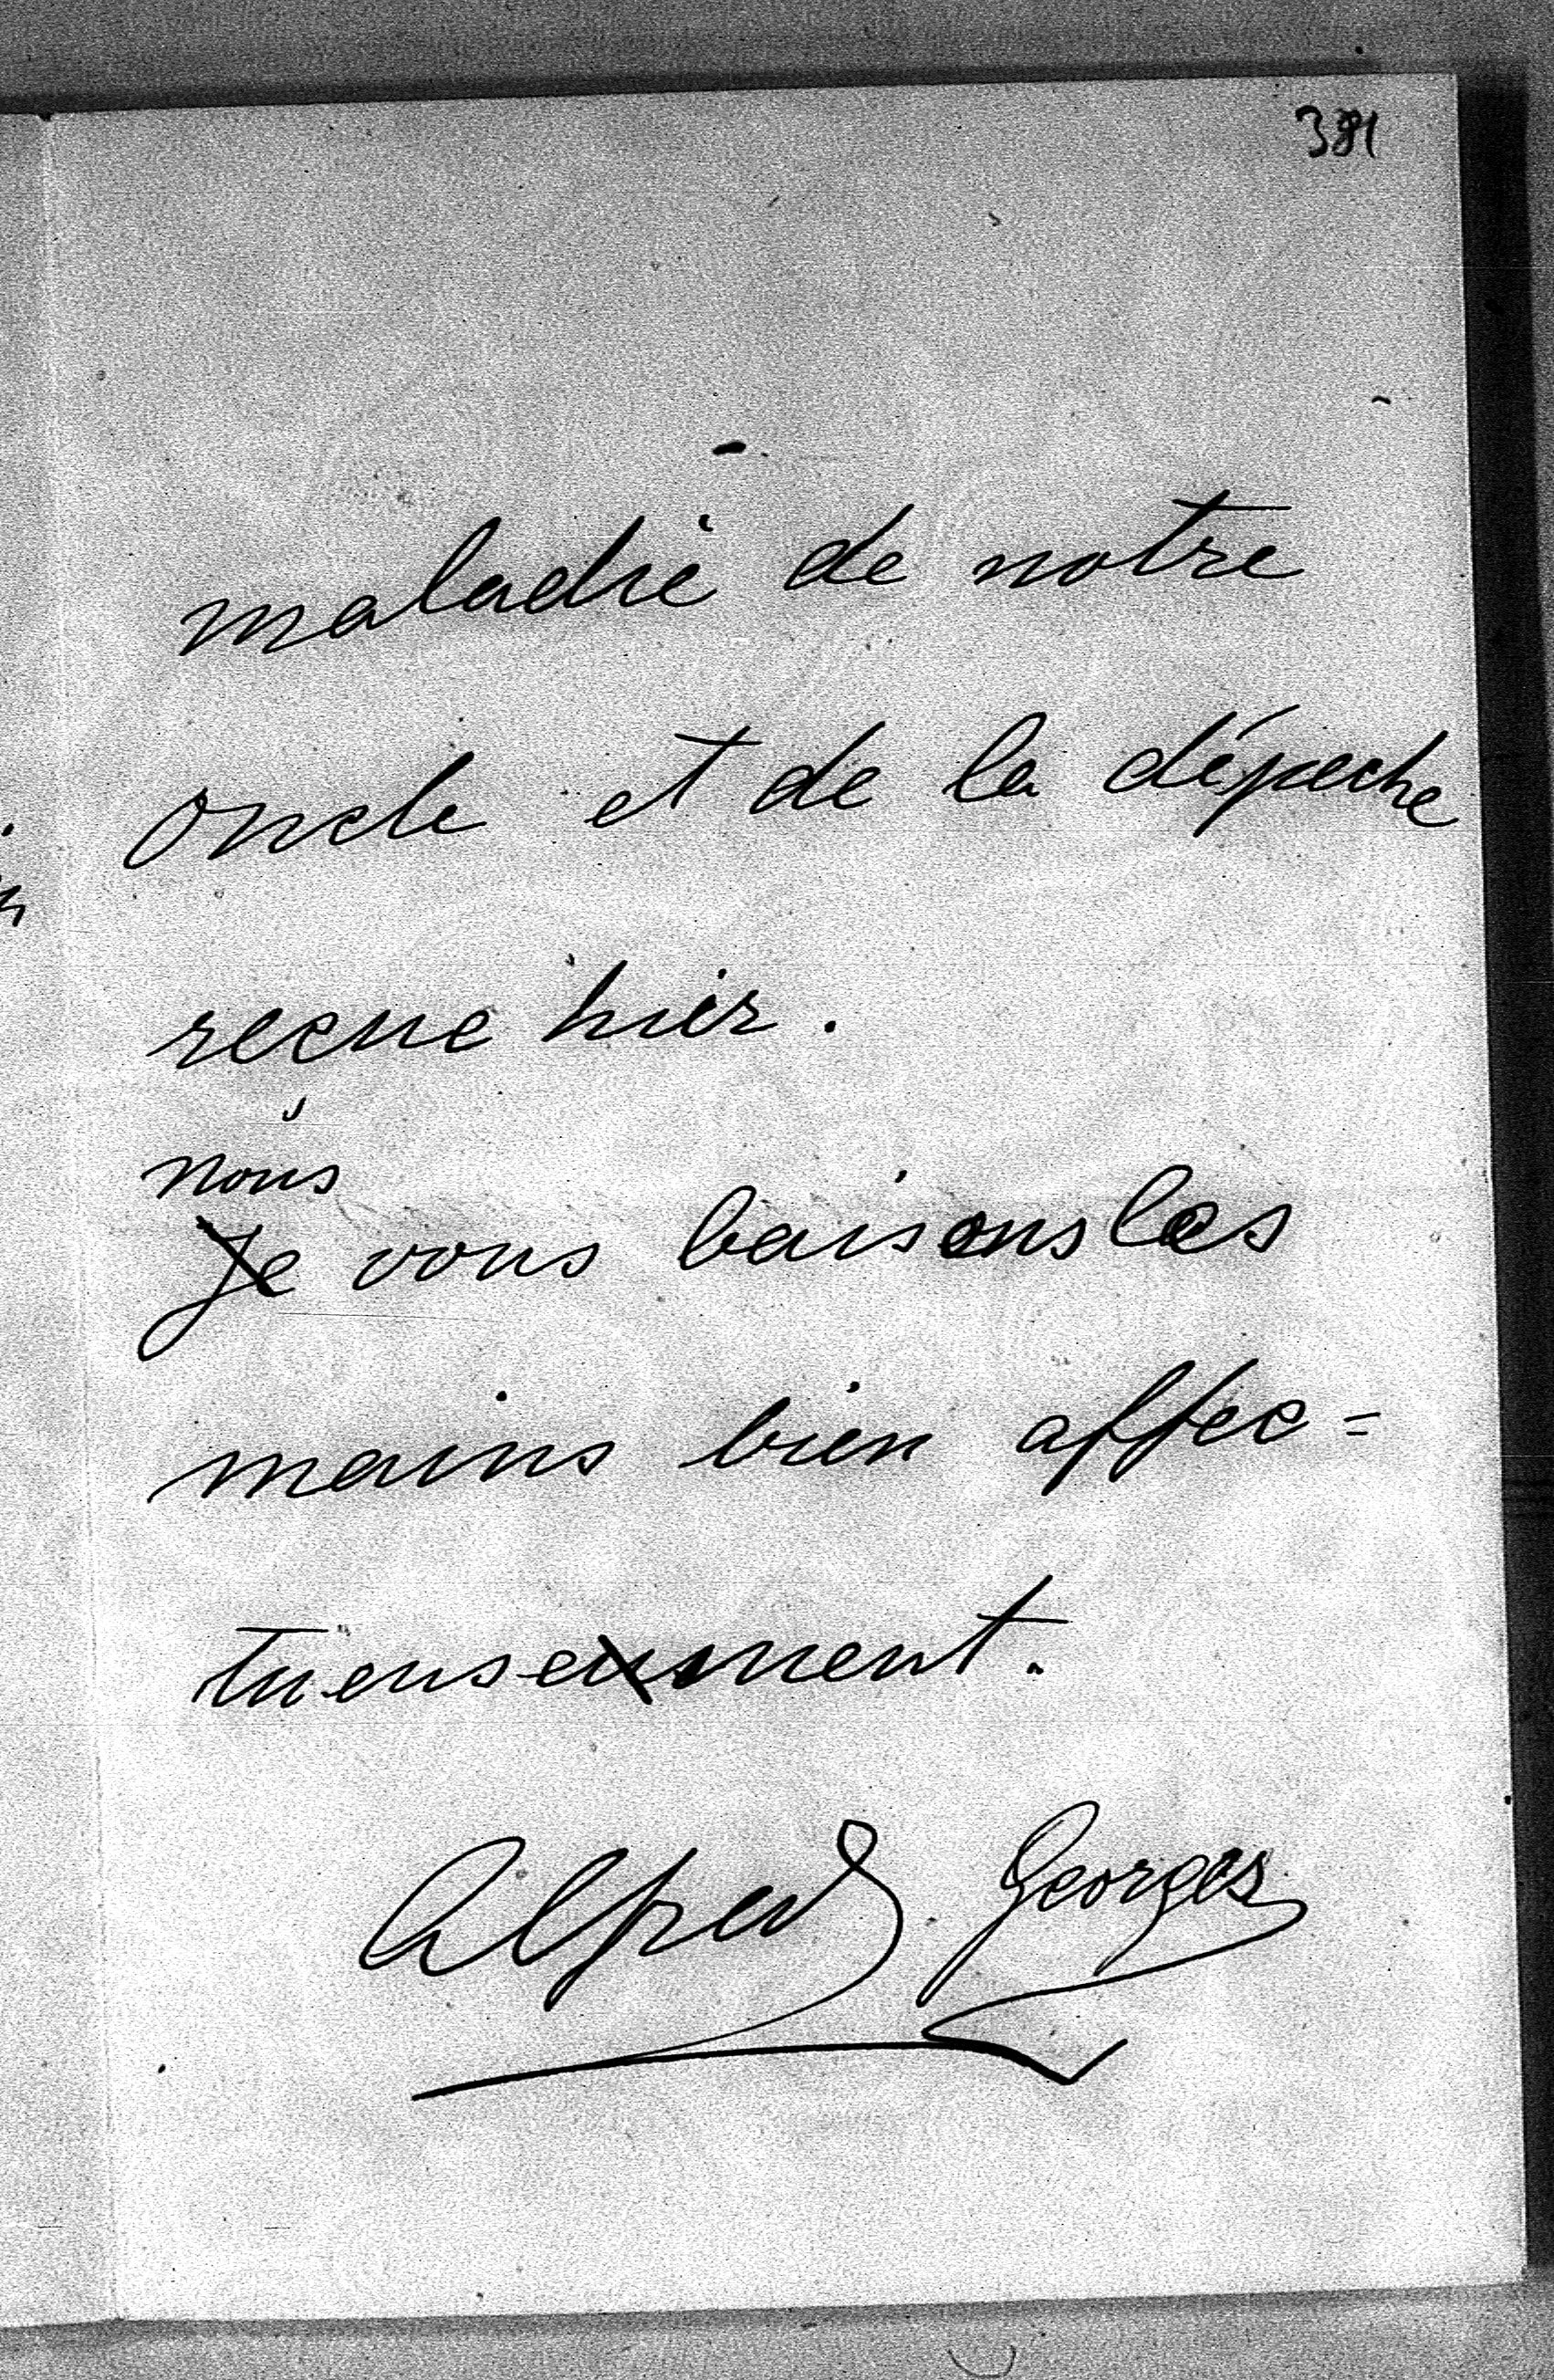 381
maladie de notre
oncle et de la dépeche
reçue hier.
nous
Je vous baisons les
mains bien affec=
tueusement.
Alfred. Georges